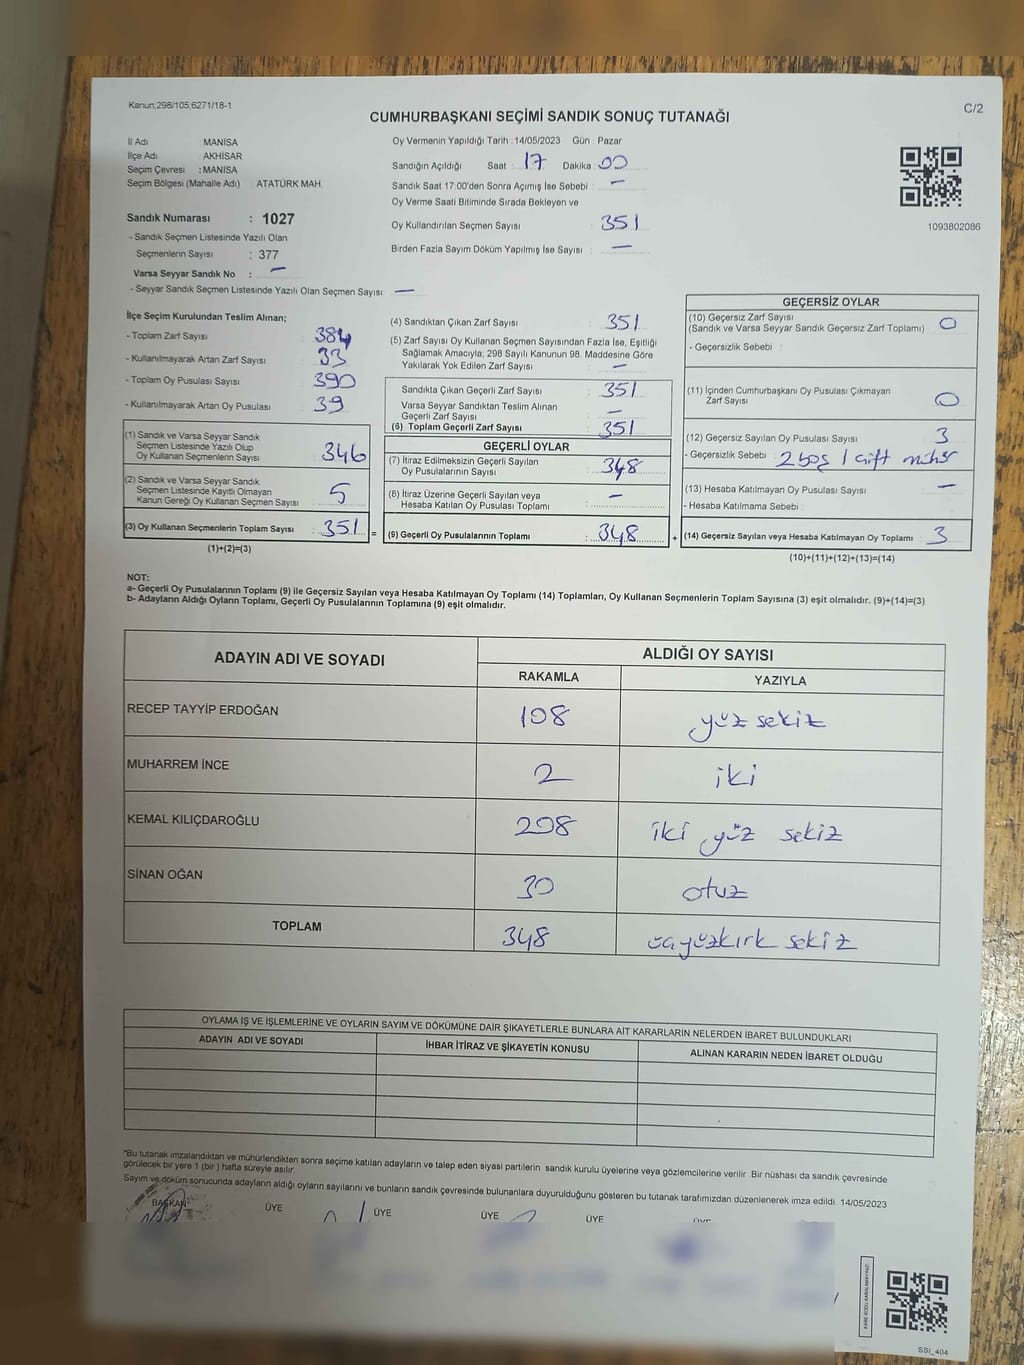 Kanun:298/105,6271/18-1
C/2
CUMHURBAŞKANI SEÇİMİ SANDIK SONUÇ TUTANAĞI
İl Adı MANİSA
İlçe Adı AKHİSAR
Seçim Çevresi : MANİSA
Seçim Bölgesi (Mahalle Adı) ATATÜRK MAH.
Sandık Numarası : 1027
- Sandık Seçmen Listesinde Yazılı Olan
Seçmenlerin Sayısı : 377
Varsa Seyyar Sandık No : —
- Seyyar Sandık Seçmen Listesinde Yazılı Olan Seçmen Sayısı : —
Oy Vermenin Yapıldığı Tarih : 14/05/2023 Gün : Pazar
Sandığın Açıldığı Saat : 17 Dakika : 00
Sandık Saat 17:00'den Sonra Açımış İse Sebebi : —
Oy Verme Saati Bitiminde Sırada Bekleyen ve
Oy Kullandırılan Seçmen Sayısı : 351
Birden Fazla Sayım Döküm Yapılmış İse Sayısı : —
1093802086
İlçe Seçim Kurulundan Teslim Alınan;
- Toplam Zarf Sayısı : 384
- Kullanılmayarak Artan Zarf Sayısı : 33
- Toplam Oy Pusulası Sayısı : 390
- Kullanılmayarak Artan Oy Pusulası : 39
(1) Sandık ve Varsa Seyyar Sandık
Seçmen Listesinde Yazılı Olup
Oy Kullanan Seçmenlerin Sayısı : 346
(2) Sandık ve Varsa Seyyar Sandık
Seçmen Listesinde Kayıtlı Olmayan
Kanun Gereği Oy Kullanan Seçmen Sayısı : 5
(3) Oy Kullanan Seçmenlerin Toplam Sayısı : 351 =
(1)+(2)=(3)
(4) Sandıktan Çıkan Zarf Sayısı : 351
(5) Zarf Sayısı Oy Kullanan Seçmen Sayısından Fazla İse, Eşitliği
Sağlamak Amacıyla, 298 Sayılı Kanunun 98. Maddesine Göre
Yakılarak Yok Edilen Zarf Sayısı : —
Sandıkta Çıkan Geçerli Zarf Sayısı : 351
Varsa Seyyar Sandıktan Teslim Alınan
Geçerli Zarf Sayısı : —
(6) Toplam Geçerli Zarf Sayısı : 351
GEÇERLİ OYLAR
(7) İtiraz Edilmeksizin Geçerli Sayılan
Oy Pusulalarının Sayısı : 348
(8) İtiraz Üzerine Geçerli Sayılan veya
Hesaba Katılan Oy Pusulası Toplamı : —
(9) Geçerli Oy Pusulalarının Toplamı : 348 +
GEÇERSİZ OYLAR
(10) Geçersiz Zarf Sayısı : 0
(Sandık ve Varsa Seyyar Sandık Geçersiz Zarf Toplamı)
- Geçersizlik Sebebi :
(11) İçinden Cumhurbaşkanı Oy Pusulası Çıkmayan
Zarf Sayısı : 0
(12) Geçersiz Sayılan Oy Pusulası Sayısı : 3
- Geçersizlik Sebebi : 2 boş 1 çift mühür
(13) Hesaba Katılmayan Oy Pusulası Sayısı : —
- Hesaba Katılmama Sebebi :
(14) Geçersiz Sayılan veya Hesaba Katılmayan Oy Toplamı : 3
(10)+(11)+(12)+(13)=(14)
NOT:
a- Geçerli Oy Pusulalarının Toplamı (9) ile Geçersiz Sayılan veya Hesaba Katılmayan Oy Toplamı (14) Toplamları, Oy Kullanan Seçmenlerin Toplam Sayısına (3) eşit olmalıdır. (9)+(14)=(3)
b- Adayların Aldığı Oyların Toplamı, Geçerli Oy Pusulalarının Toplamına (9) eşit olmalıdır.
ADAYIN ADI VE SOYADI
ALDIĞI OY SAYISI
RAKAMLA YAZIYLA
RECEP TAYYİP ERDOĞAN 108 yüz sekiz
MUHARREM İNCE 2 iki
KEMAL KILIÇDAROĞLU 208 iki yüz sekiz
SİNAN OĞAN 30 otuz
TOPLAM 348 üçyüzkırk sekiz
OYLAMA İŞ VE İŞLEMLERİNE VE OYLARIN SAYIM VE DÖKÜMÜNE DAİR ŞİKAYETLERLE BUNLARA AİT KARARLARIN NELERDEN İBARET BULUNDUKLARI
ADAYIN ADI VE SOYADI İHBAR İTİRAZ VE ŞİKAYETİN KONUSU ALINAN KARARIN NEDEN İBARET OLDUĞU
*Bu tutanak imzalandıktan ve mühürlendikten sonra seçime katılan adayların ve talep eden siyasi partilerin sandık kurulu üyelerine veya gözlemcilerine verilir. Bir nüshası da sandık çevresinde
görülecek bir yere 1 (bir ) hafta süreyle asılır.
Sayım ve döküm sonucunda adayların aldığı oyların sayılarını ve bunların sandık çevresinde bulunanlara duyurulduğunu gösteren bu tutanak tarafımızdan düzenlenerek imza edildi. 14/05/2023
BAŞKAN ÜYE ÜYE ÜYE ÜYE ÜYE
KARE KODU KARALAMAYINIZ!
SSİ_404